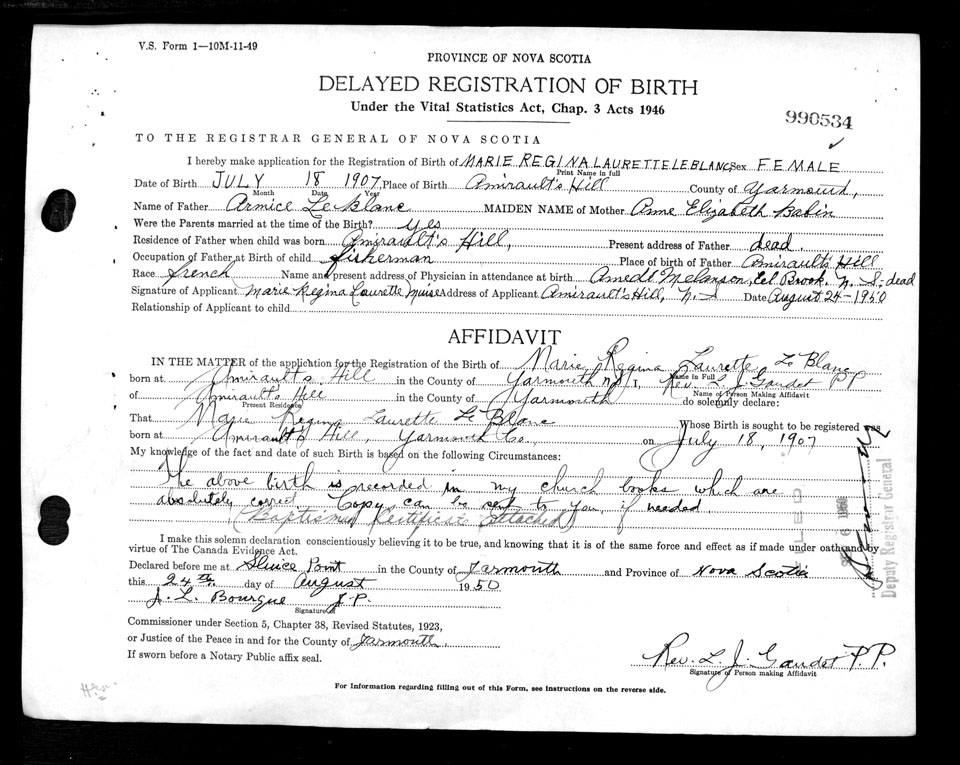 V.S. Form 1—10M-11-49
PROVINCE OF NOVA SCOTIA
DELAYED REGISTRATION OF BIRTH
Under the Vital Statistics Act, Chap. 3 Acts 1946
990534
TO THE REGISTRAR GENERAL OF NOVA SCOTIA
I hereby make application for the Registration of Birth of MARIE REGINA LAURETTE LEBLANC Sex FEMALE
Print Name in full
Date of Birth JULY 18 1907, Place of Birth Amirault's Hill County of Yarmouth,
Month Date Year
Name of Father Armice Le Blanc MAIDEN NAME of Mother Anne Elizabeth Babin
Were the Parents married at the time of the Birth? yes
Residence of Father when child was born Amirault's Hill, Present address of Father dead.
Occupation of Father at Birth of child fisherman Place of birth of Father Amirault's Hill
Race French Name and present address of Physician in attendance at birth Amedé Melanson, Eel Brook, N. S. dead
Signature of Applicant Marie Regina Laurette Muise Address of Applicant Amirault's Hill, N. S Date August 24-1950
Relationship of Applicant to child
AFFIDAVIT
IN THE MATTER of the application for the Registration of Birth of Marie Regina Laurette Le Blanc
Name in Full
born at Amirault's Hill in the County of Yarmouth N. S, Rev. L. J. Gaudet P P
Name of Person Making Affidavit
of Amirault's Hill in the County of Yarmouth do solemnly declare:
Present Residence
That Marie Regina Laurette Le Blanc Whose Birth is sought to be registered was
born at Amirault's Hill, Yarmouth Co. on July 18, 1907
My knowledge of the fact and date of such Birth is based on the following Circumstances:
The above birth is recorded in my church books which are
absolutely correct Copy can be sent to you, if needed
(Baptismal Certificate Attached)
I make this solemn declaration conscientiously believing it to be true, and knowing that it is of the same force and effect as if made under oath and by
virtue of The Canada Evidence Act.
Declared before me at Sluice Point in the County of Yarmouth and Province of Nova Scotia
this 24th day of August 1950
J. L. Bourque J.P.
Signature of
Commissioner under Section 5, Chapter 38, Revised Statutes, 1923,
or Justice of the Peace in and for the County of Yarmouth
If sworn before a Notary Public affix seal.
Rev. L. J. Gaudet P. P.
Signature of Person making Affidavit
For Information regarding filling out of this Form, see instructions on the reverse side.
Deputy Registrar General